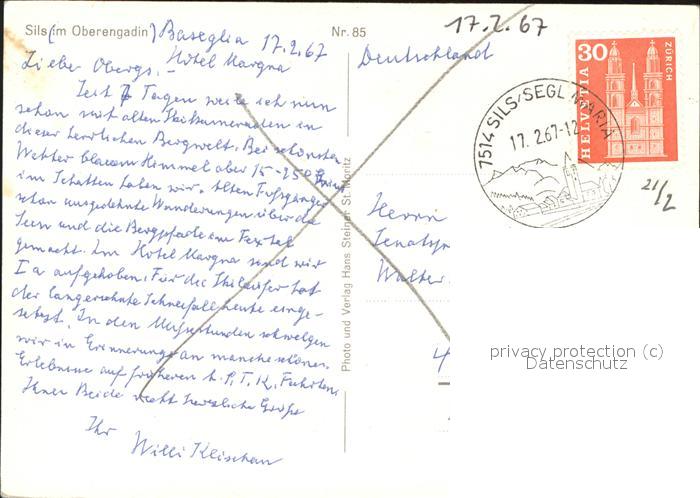 Sils (im Oberengadin) Baseglia 17.2.67
Hotel Margna
Liebe Obergs, –
Seit 7 Tagen weile ich nun
schon mit alten Skikameraden in
dieser herrlichen Bergwelt. Bei schönstem
Wetter blauem Himmel aber 15-25°
im Schatten haben wir alten Fußgänger
schon ausgedehnte Wanderungen über die
Seen und die Bergpfade am Fextal
gemacht. Im Hotel Margna sind wir
Ia aufgehoben. Für die Skiläufer hat
der langersehnte Schneefall heute einge-
setzt. In den Mußestunden schwelgen
wir in Erinnerung an manche schönen
Erlebnisse auf früheren Fahrten.
Ihnen Beide recht herzliche Grüße
Ihr
Willi Klischan
Nr. 85
Photo und Verlag Hans Steiner St. Moritz
17.2.67
Deutschland
HELVETIA 30 ZÜRICH
7514 SILS/SEGL MARIA
17.2.67-12
21/2
Herrn
Walter
4
privacy protection (c)
Datenschutz